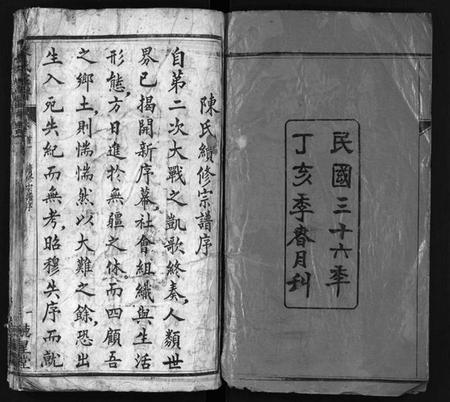 民國三十六年
丁亥季春月刊
陳氏續修宗譜序
自第二次大戰之凱歌終奏人類世
界已揭開新序幕社會組織與生活
形態方日進於無疆之休而四顧吾
之鄉土則惴惴然以大難之餘恐出
生入死失紀而無考昭穆失序而就